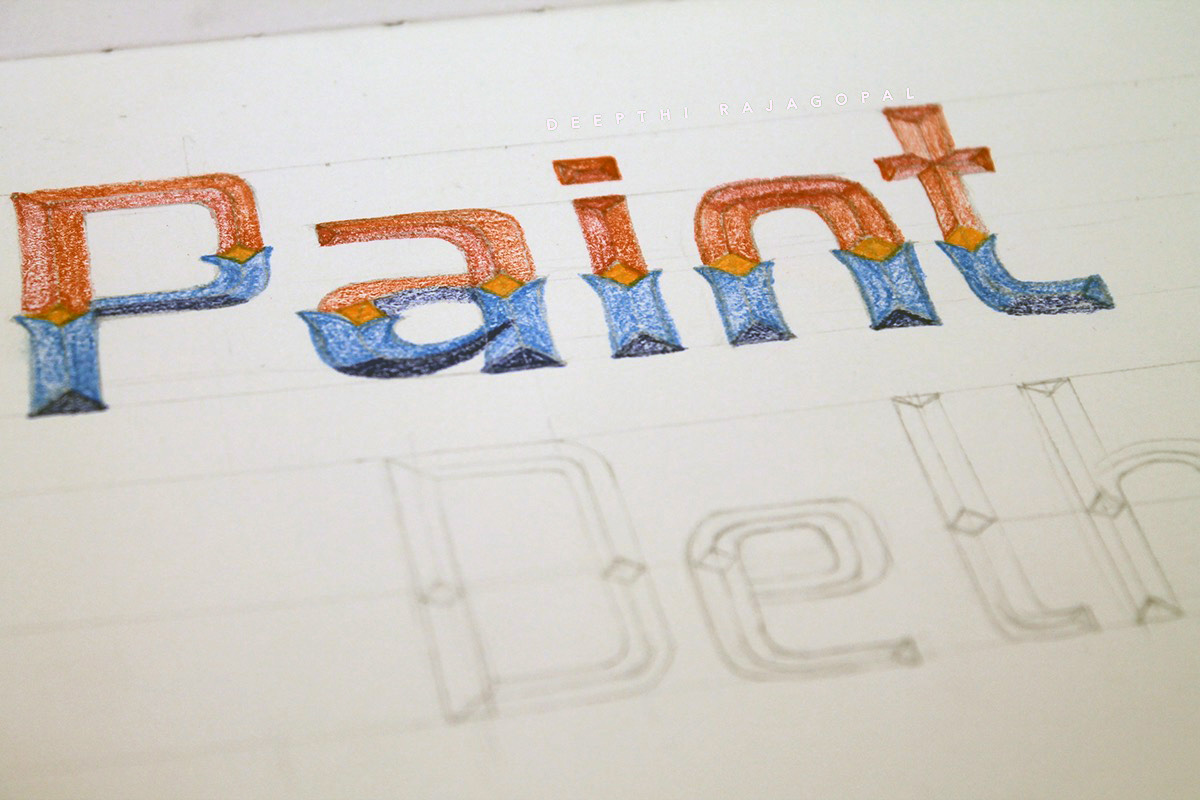 DEEPTHI RAJAGOPAL
Paint
Delh